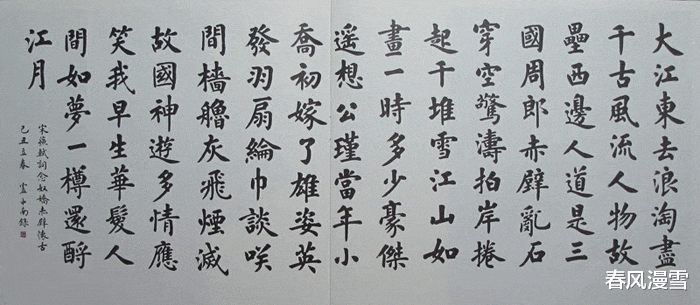 大江東去浪淘盡
千古風流人物故
壘西邊人道是三
國周郎赤壁亂石
穿空驚濤拍岸捲
起千堆雪江山如
畫一時多少豪傑
遥想公瑾當年小
喬初嫁了雄姿英
發羽扇綸巾談咲
間檣艣灰飛煙滅
故國神遊多情應
笑我早生華髮人
間如夢一樽還酹
江月
宋蘇軾詞念奴嬌赤壁懷古
己丑立春
春风漫雪